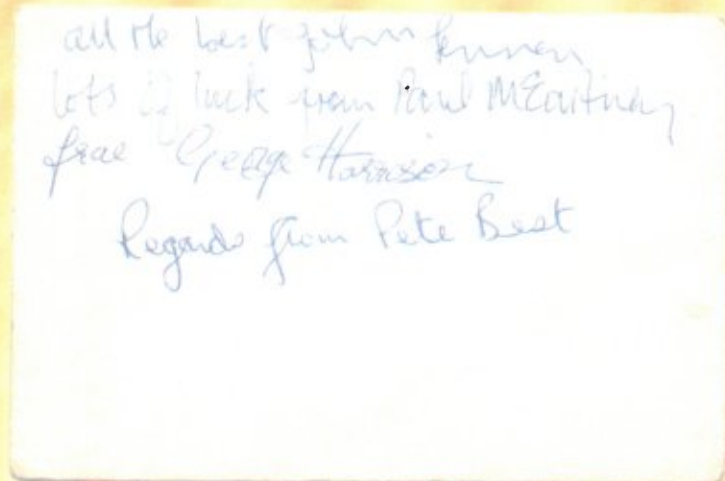 all the best John Lennon
lots of luck from Paul McCartney
frae George Harrison
Regards from Pete Best